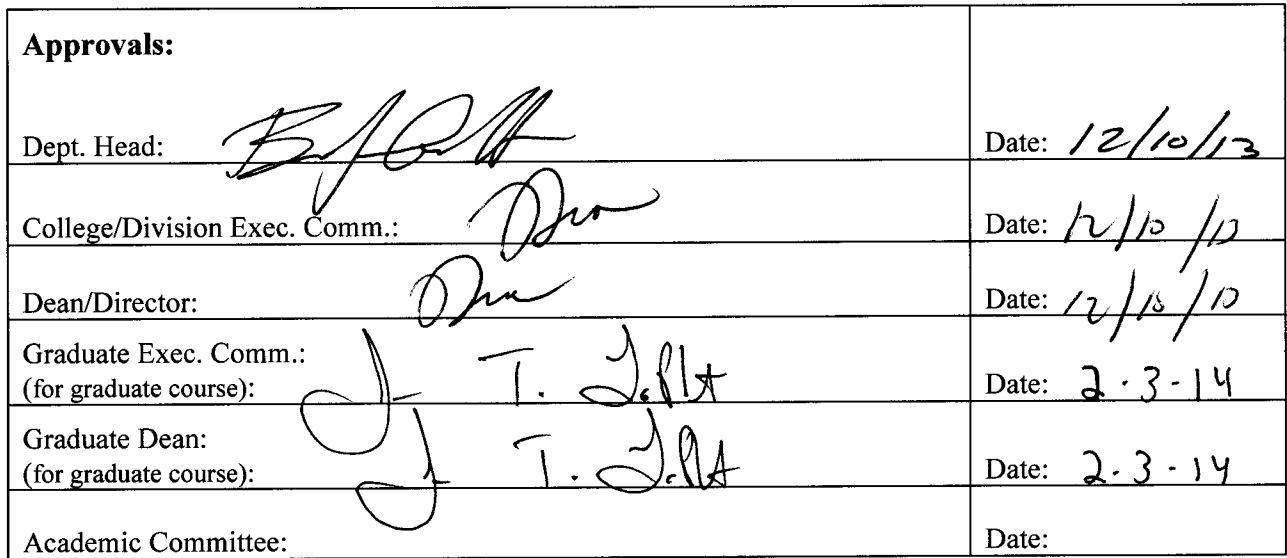 Approvals:
Dept. Head: Date: 12/10/13
College/Division Exec. Comm.: Date: 12/10/13
Dean/Director: Date: 12/10/13
Graduate Exec. Comm.:
(for graduate course): J. T. Date: 2-3-14
Graduate Dean:
(for graduate course): J. T. Date: 2-3-14
Academic Committee: Date: